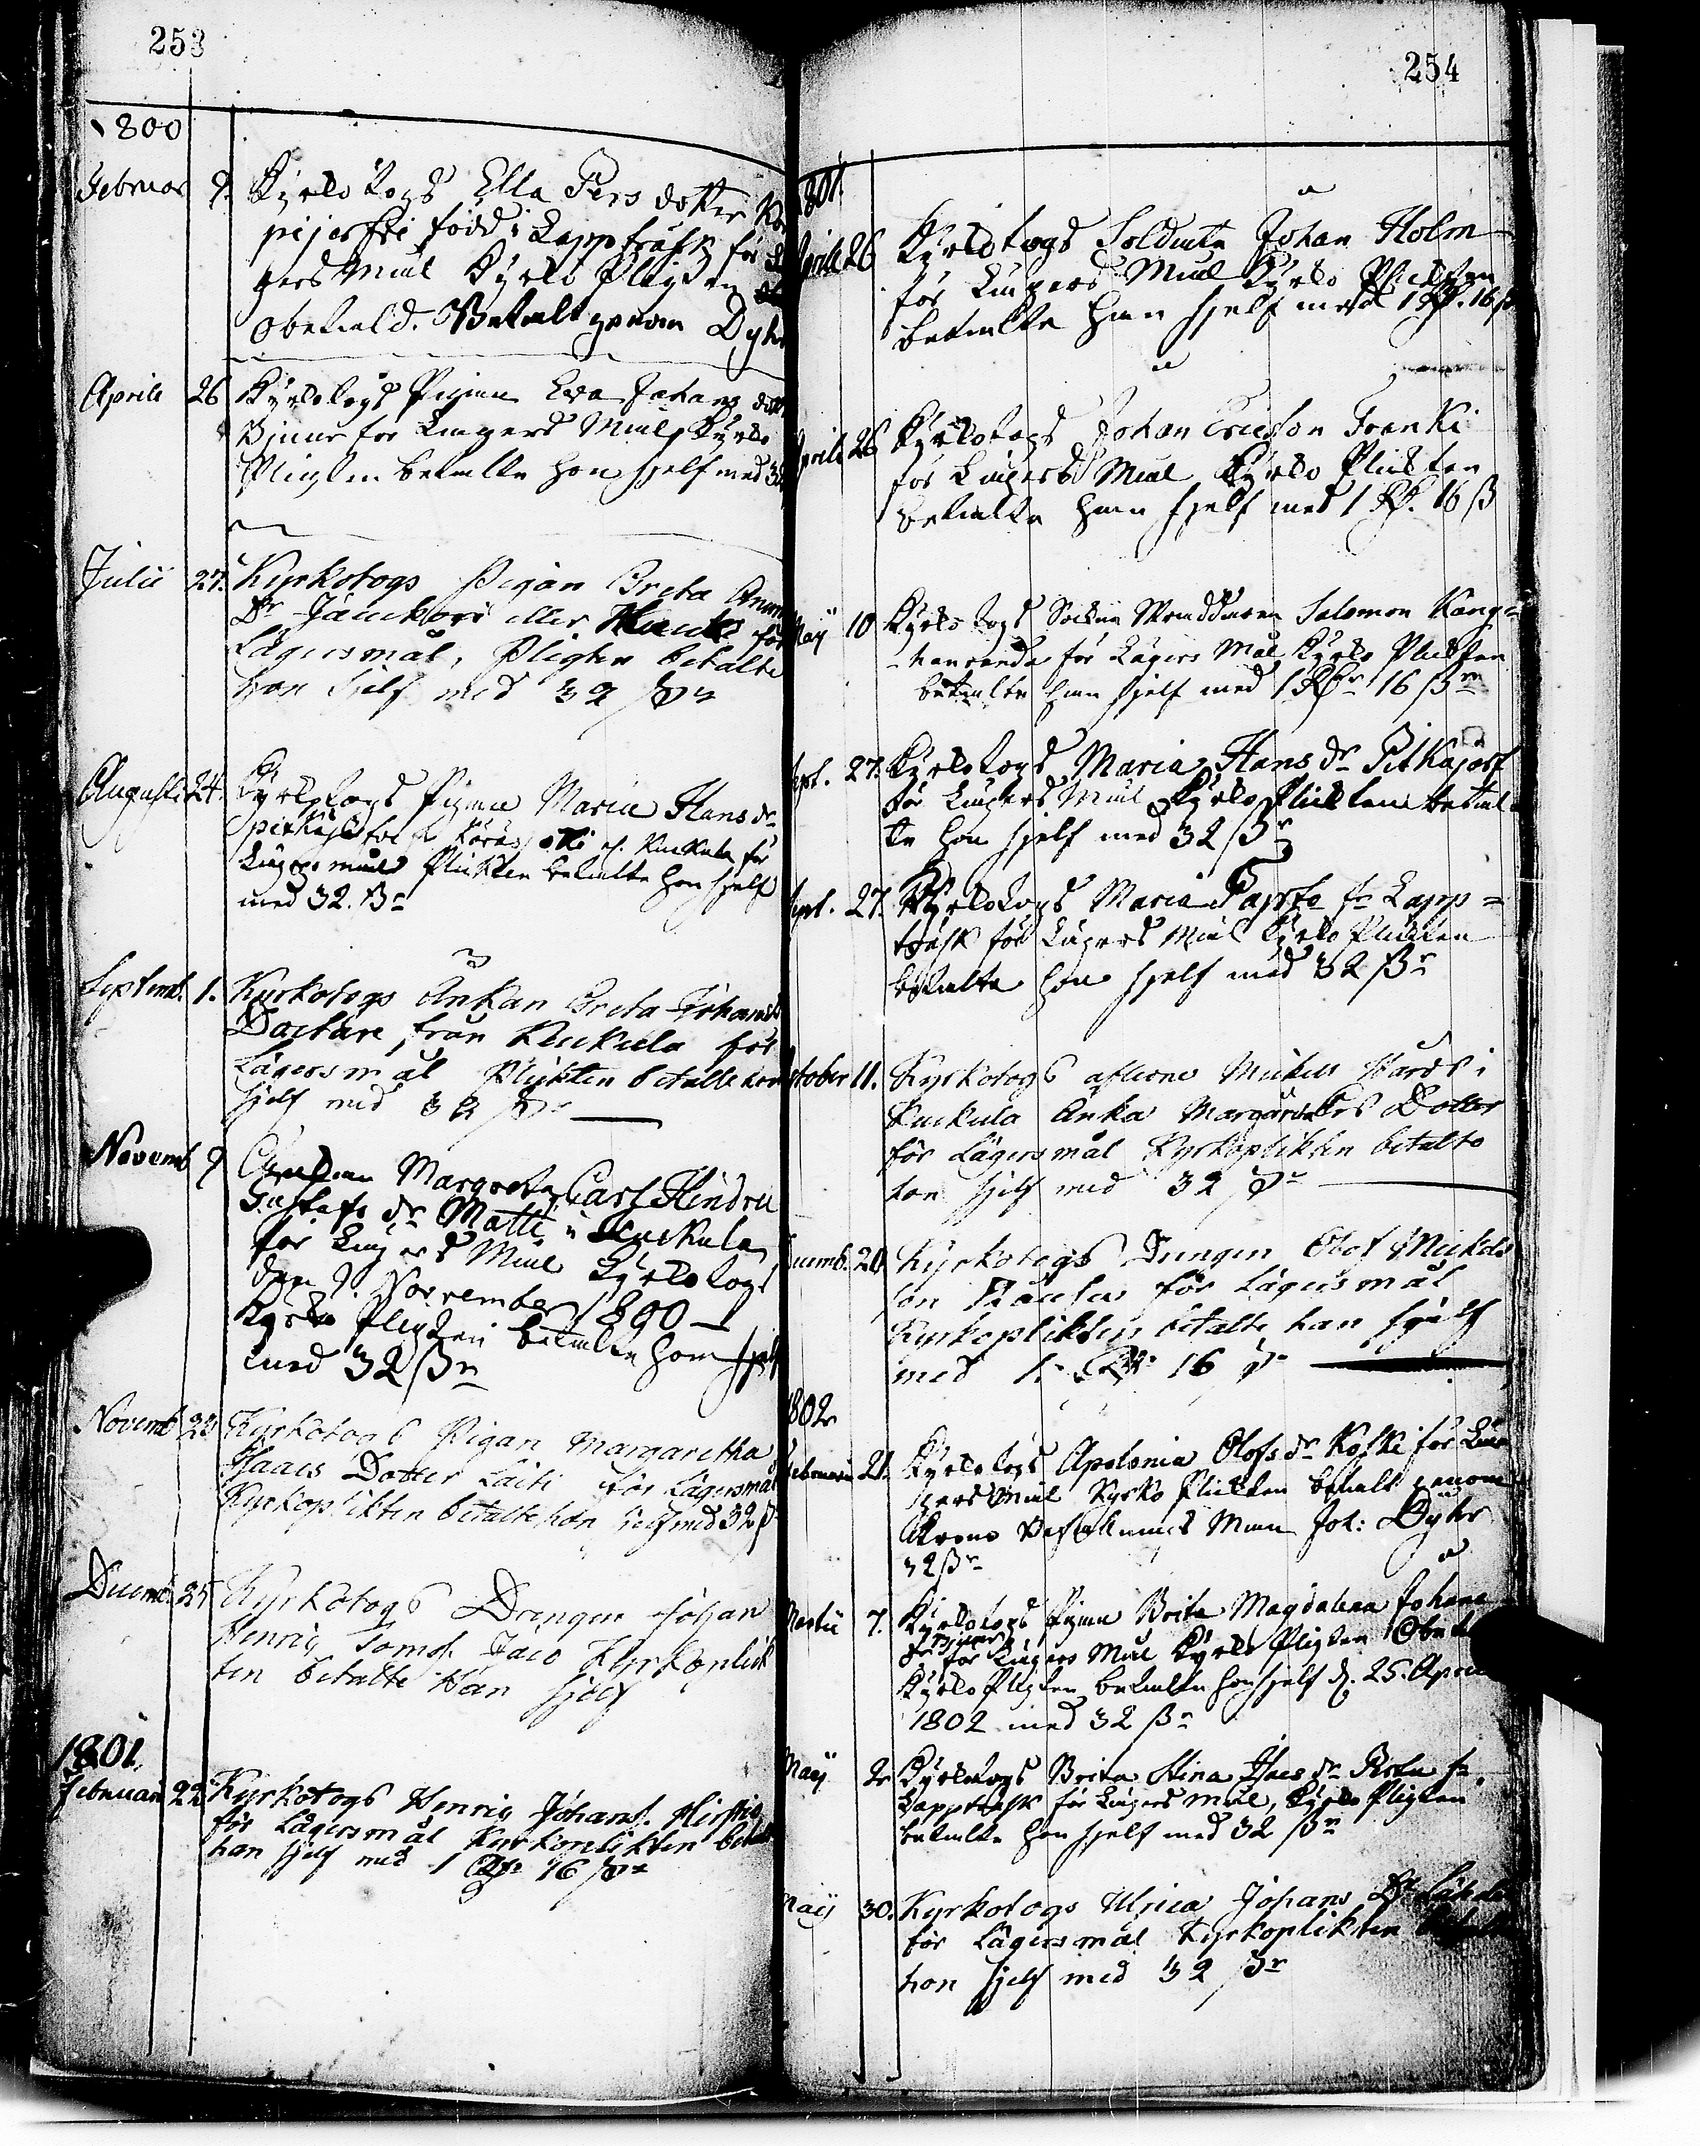 253
1800
Februar 9. Kyrkotogs Ella Pers dotter
född i Lappträsk för
gers Mål Kyrko Pligten
obetald. Betalt genom Dyhr
Aprilis 26 Kyrkotogs Pigan Eva Johans dott
för Lägers Mål, Kyrko
Pligten betalte hon sjelf med 32
Julii 27. Kyrkotogs Pigan Breta
Dr eller för
Lägersmål, Pligten betalte
hon sjelf med 32 ßr
Augusti 24. Kyrkotogs Pigan Maria Hans dr
Kuckula för
Lägersmål Plickten betalte hon sjelf
med 32. ßr
Septemb. 1. Kyrkotogs Änkan Breta Johans
Dotter från Kuckula för
Lägersmål Plickten betalte hon
sjelf med 32 ßr
Novemb 9 Margreta Carl Hindric
Gustafs dr Matti i Kuckula
för Lägers Mål Kyrkotogs
den 9. November 1800
Kyrko Pligten betalte hon sjelf
med 32 ßr
Novemb 23 Kyrkotogs Pigan Margaretha
Isaacs Dotter Laiti för Lägersmål
Kyrkoplikten betalte hon sielf med 32 ß
Decemb. 25 Kyrkotogs Drengen Johan
Henric Tomss. Jaco Kyrkoplick
ten betalte Han sjelf
1801.
Februari 22 Kyrkotogs Henric Johans.
för Lägersmål Kyrkoplikten betalt
han sjelf med 1 Rdr 16 ßr
254
1801.
Aprilis 26 Kyrkotogs Soldaten Johan Holm
för Lägers Mål Kyrko Plickten
betalte han sjelf med 1 Rd. 16 ß
Aprilis 26 Kyrkotogs Johan Ericsson Franki
för Lägers Mål Kyrko Plickten
betalte han sjelf med 1 Rd. 16 ß
Maij 10 Kyrkotogs Sockne Skräddaren Salomon Kangas-
för Lägers Mål Kyrko Plickten
betalte han sjelf med 1 Rdr 16 ßr
Sept. 27. Kyrkotogs Maria Hans dr Pitkäjärf
för Lägers Mål Kyrko Plickten betal-
te hon sjelf med 32 ßr
Sept. 27. Kyrkotogs Maria fr Lapp=
träsk för Lägers Mål Kyrko Plickten
betalte hon sjelf med 32 ßr
October 11. Kyrkotogs aflidne Mickel i
Kuckula Änka Margareta Dotter
för Lägersmål Kyrkoplikten betalte
hon sjelf med 32 ßr
Decemb. 20 Kyrkotogs Drengen Olof Mickels
son för Lägersmål
Kyrkoplikten betalte han sjelf
med 1. Rdr 16 ßr
1802
Februarii 21. Kyrkotogs Apolonia Olofs dr Koski för Lä
gers Mål Kyrko Plickten betalt genom
Krono Befallnings Man Joh: Dyhr
32 ßr
Martii 7. Kyrkotogs Pigan Brita Magdalena Johans
dr för Lägers Mål Kyrko Pligten
Kyrko Pligten betalte hon sjelf d. 25. April
1802 med 32 ßr
Maij 2 Kyrkotogs Brita Stina Isacs dr fr
Lappträsk för Lägers mål, Kyrko Pligten
betalte hon sjelf med 32 ßr
Maij 30. Kyrkotogs Ulrica Johans Dr
för Lägersmål Kyrkoplikten betalte
hon sjelf med 32 ßr